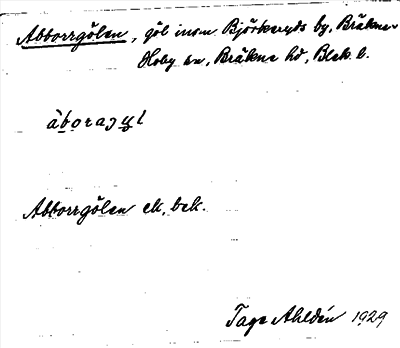 Abborrgölen, göl inom Björkeryds by, Bräkne-
Hoby sn, Bräkne hd, Blek. l.
Abborrgölen ek, bek.
Tage Ahldén 1929